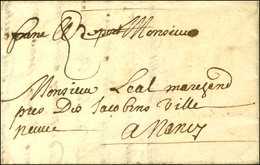 Monsieur
Monsieur Leal marchand
pres Des Jacobins Ville
neuve
a Nancy